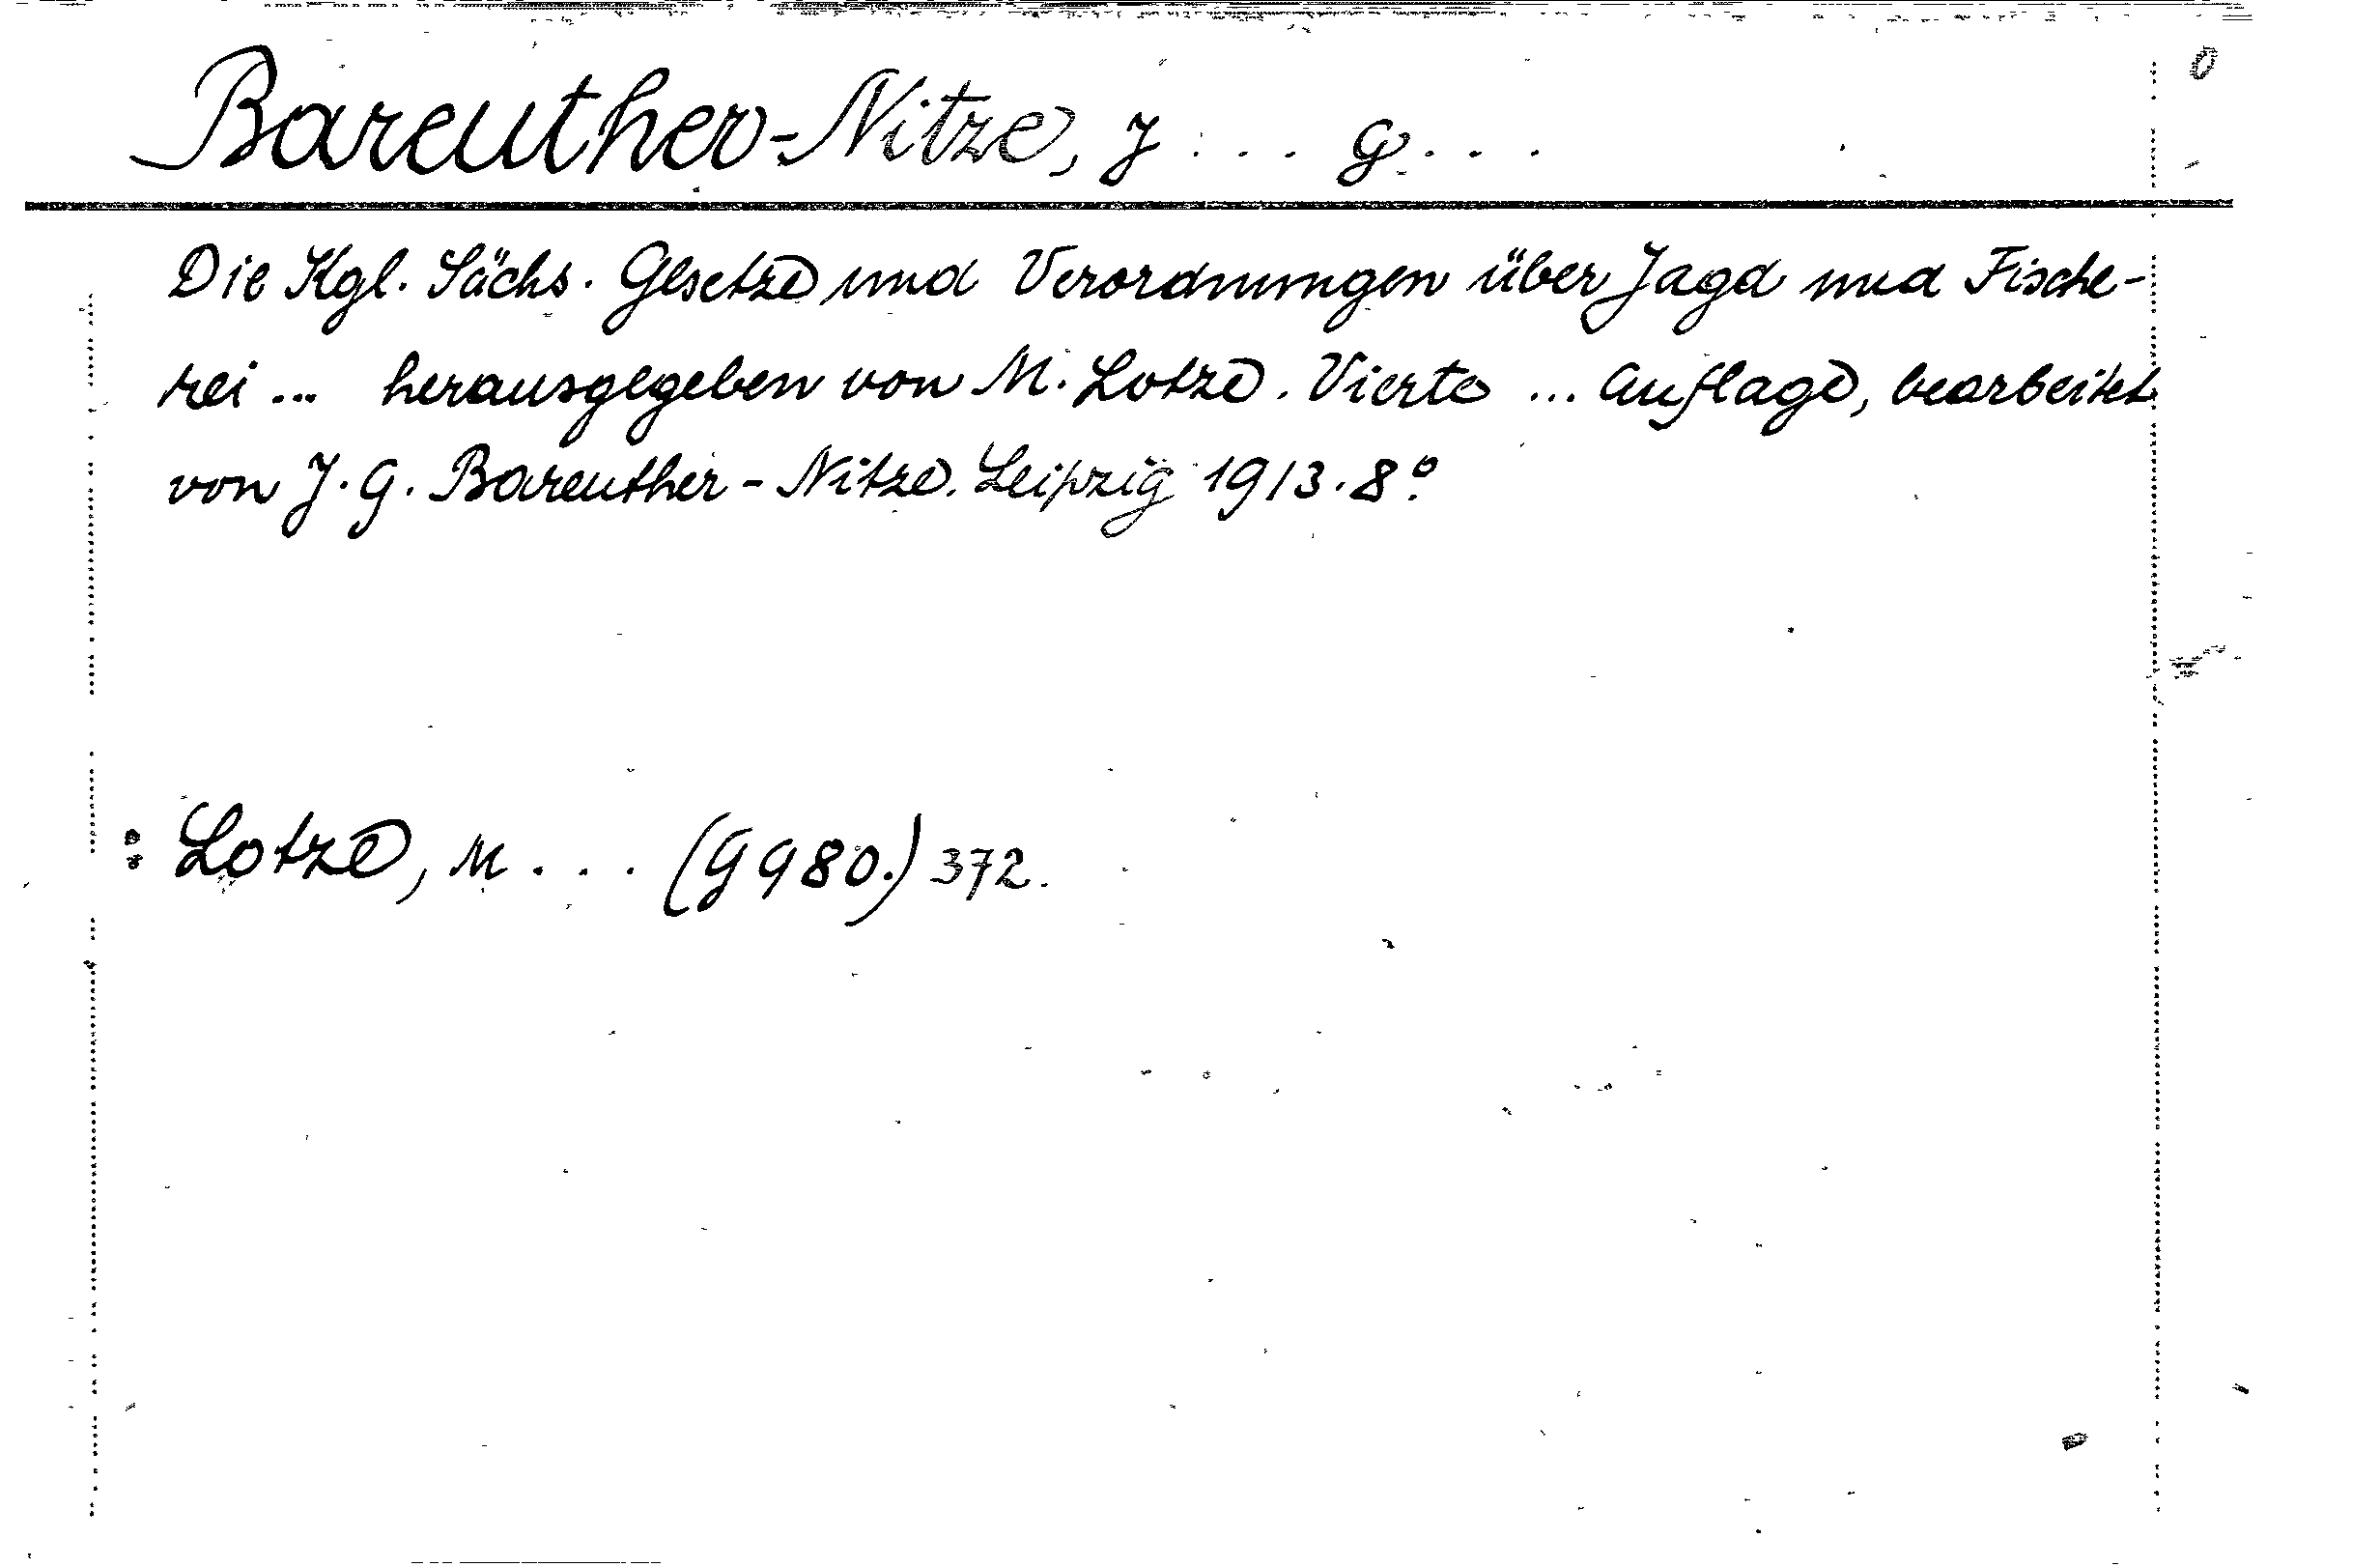 Bareuther-Nitze, J... G...
Die Kgl. Sächs. Gesetze und Verordnungen über Jagd und Fische-
rei ... herausgegeben von M. Lotze. Vierte ... Auflage, bearbeitet
von J. G. Bareuther-Nitze. Leipzig 1913. 8°.
: Lotze, M... (G 980.) 372.